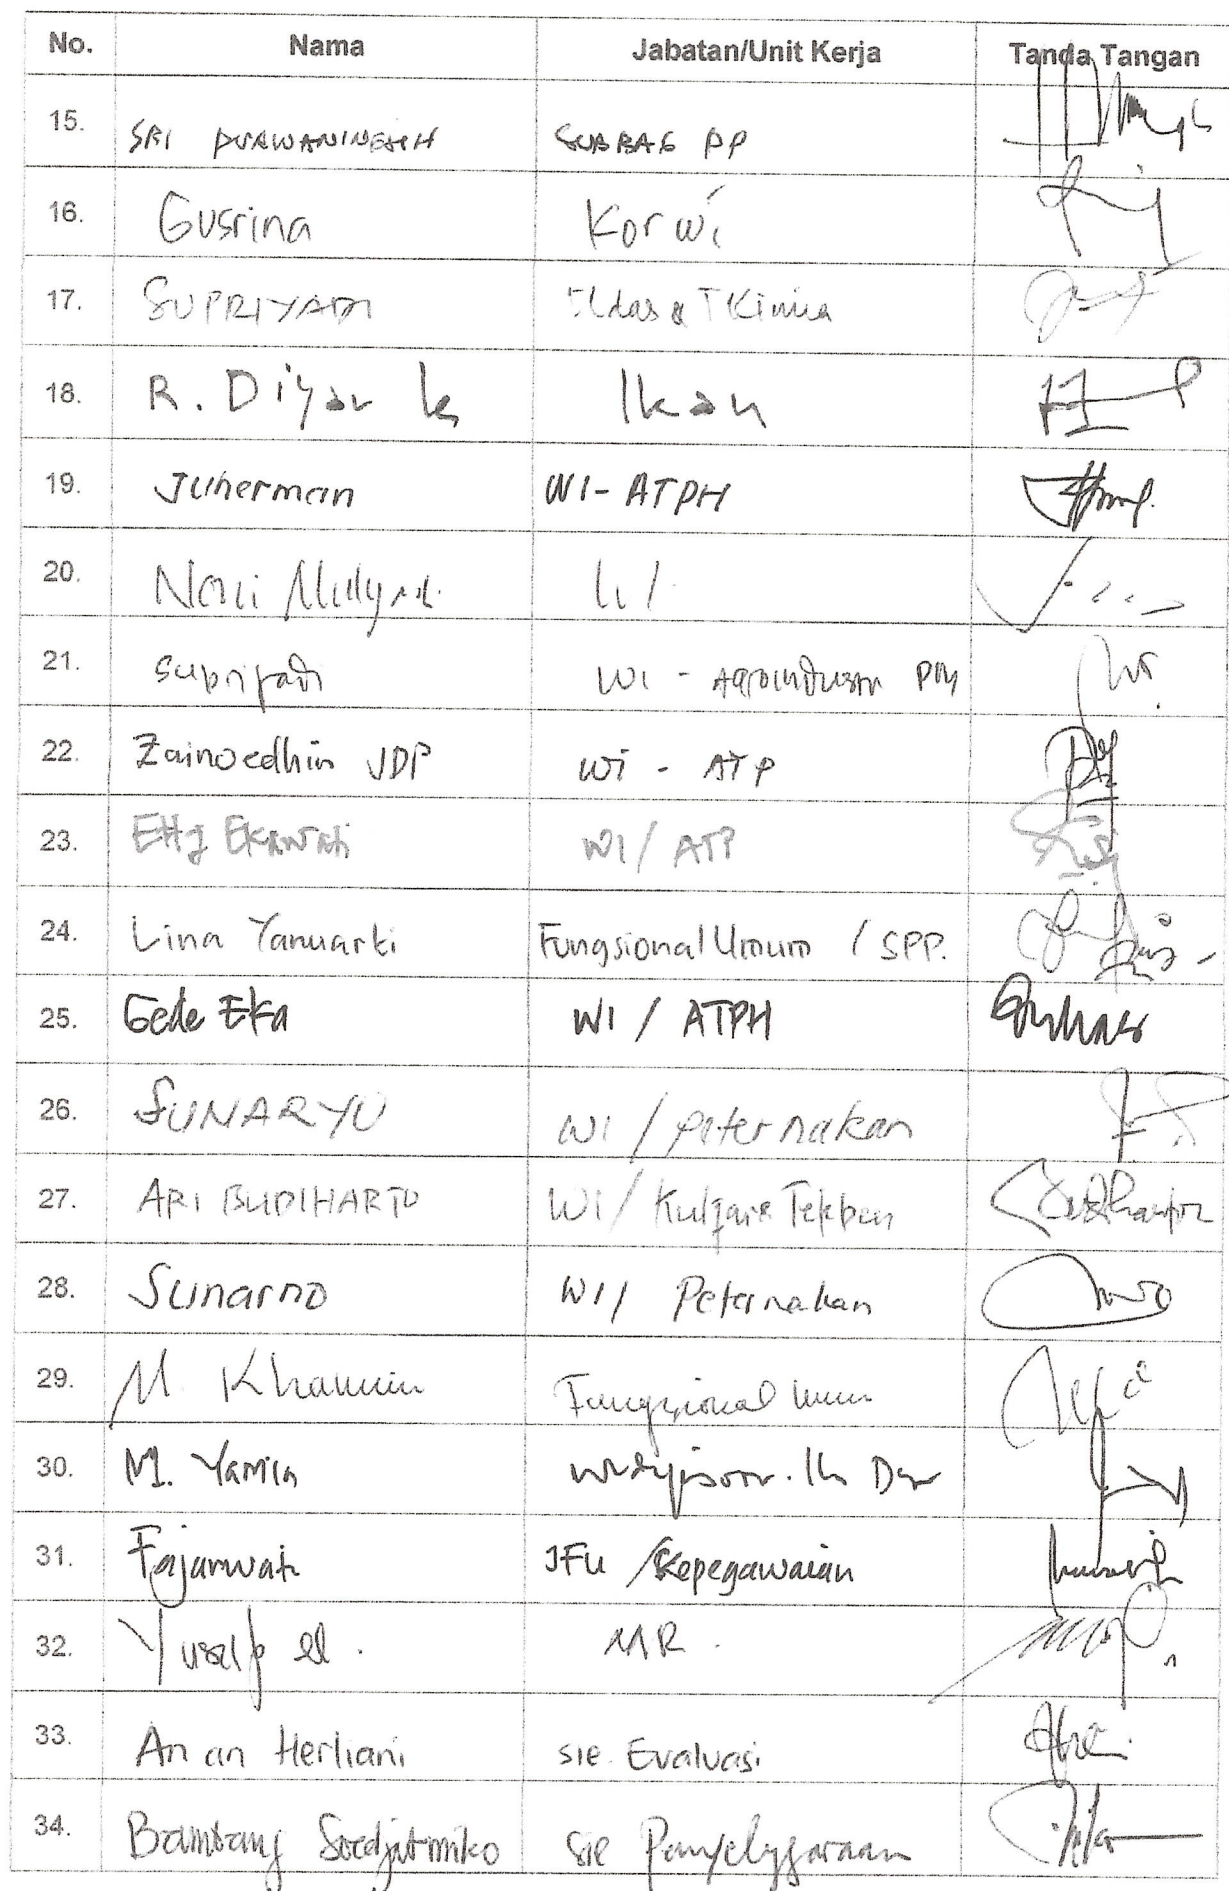 No. Nama Jabatan/Unit Kerja Tanda Tangan
15. SRI PURWANINGSIH SUBBAG PP
16. Gusrina Korwi
17. SUPRIYADI & T Kimia
18. R. Diyar K Ikan
19. Juherman WI - ATPH
20.
21. Supriyadi WI - Agroindustri
22. Zainoedhin JDP WI - ATP
23. Etty Ekawati WI / ATP
24. Lina Yanuarti Fungsional Umum / SPP.
25. Gede Eka WI / ATPH
26. SUNARYO WI / peternakan
27. ARI BUDIHARTO WI /
28. Sunarno WI / Peternakan
29. M. Khamim Fungsional Umum
30. M. Yamin
31. Fajarwati JFU / Kepegawaian
32. MR.
33. An an Herliani sie. Evaluasi
34. Bambang Soedjatmiko sie Penyelenggaraan